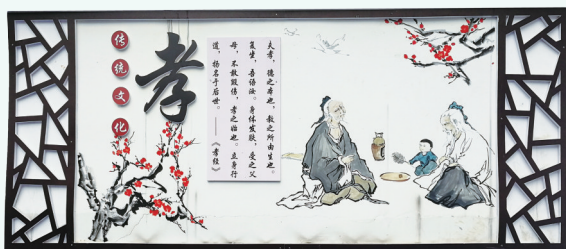 传统文化
孝
夫孝，德之本也，教之所由生也。
复坐，吾语汝。身体发肤，受之父
母，不敢毁伤，孝之始也。立身行
道，扬名于后世。——《孝经》